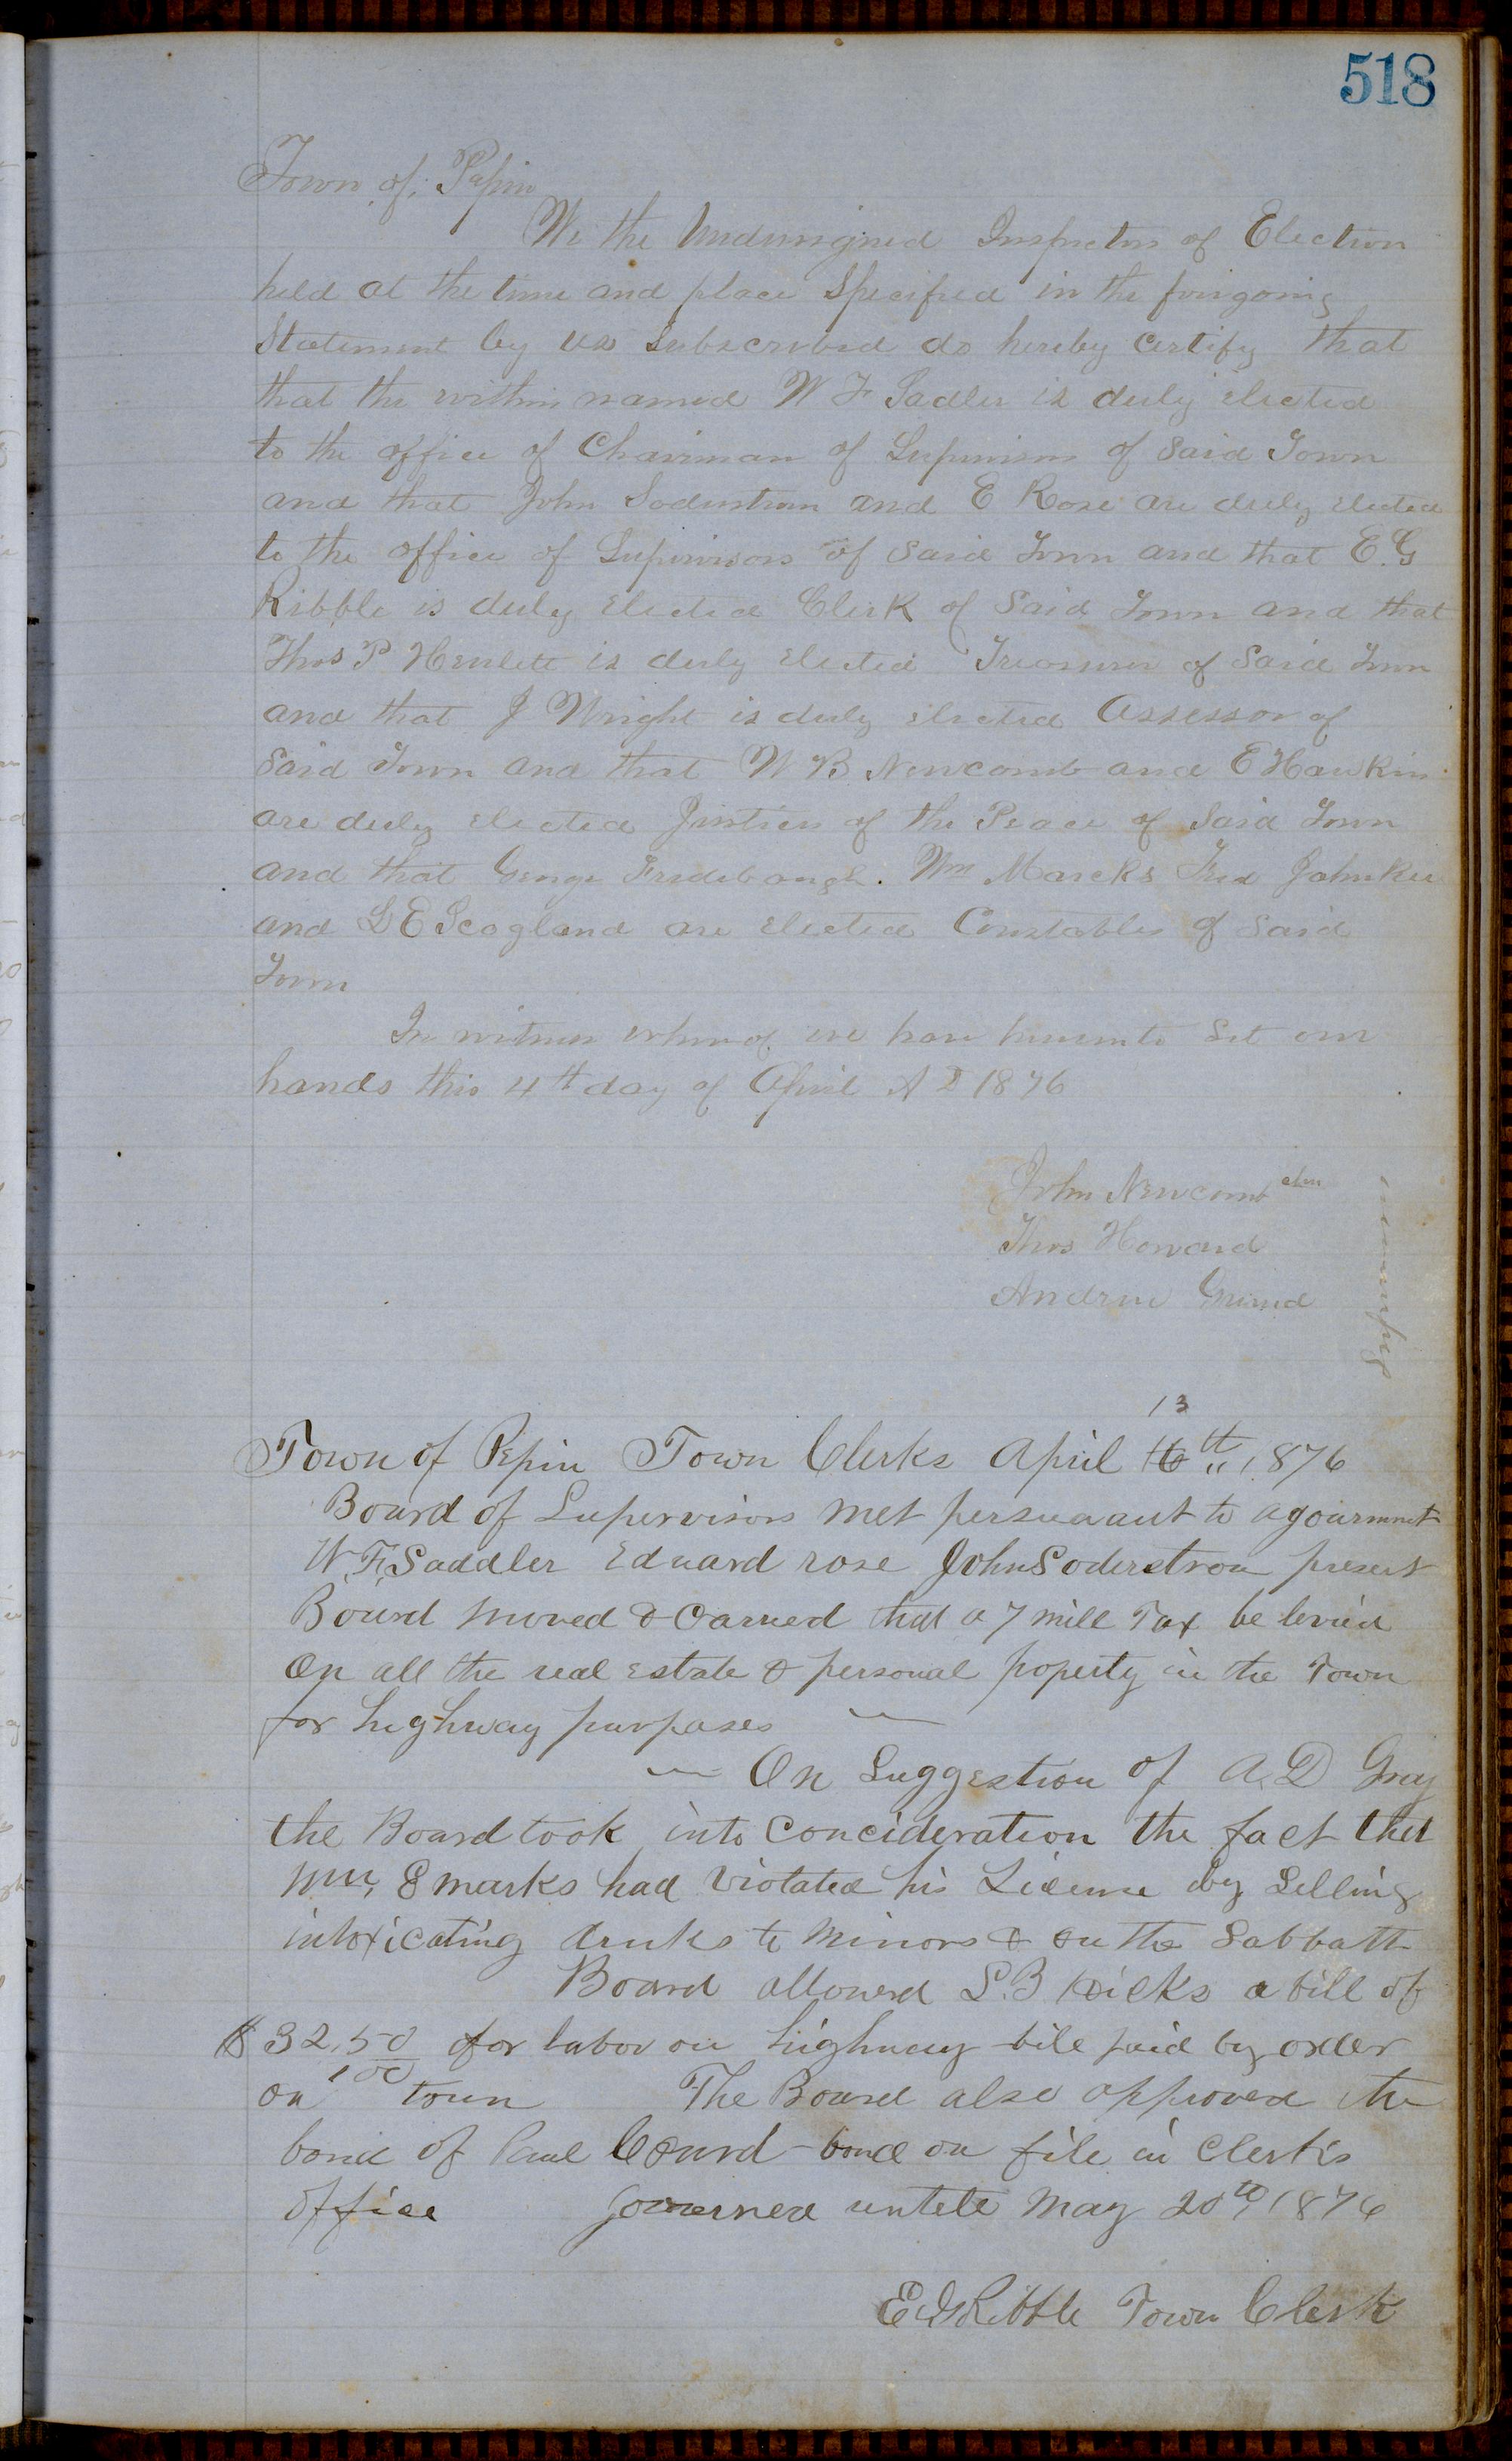 518
Town of Pepin
We the Undersigned Inspectors of Election
held at the time and place Specified in the foregoing
Statement by us Subscribed do hereby Certify that
that the within named W F Sadler is duly elected
to the office of Chairman of Supervisors of Said Town
and that John Soderstrom and E Rose are duly elected
to the office of Supervisors of Said Town and that E. G
Ribble is duly Elected Clerk of Said Town and that
Thos P Hewlett is duly Elected Treasurer of Said Town
and that J Wright is duly elected Assessor of
Said Town and that W B. Newcomb and E Hawkins
are duly Elected Justices of the Peace of Said Town
and that George Fredebaugh. Wm Marcks Fred Johnken
and L E Scogland are Elected Constables of Said
Town
In witness whereof we have hereunto Set our
hands this 4th day of April A D 1876
John Newcomb chn
Thos Howard
Andrew
Inspectors
13
Town of Pepin Town Clerks April 16th " 1876
Board of Supervisors met persuaant to agourmnet
W. F. Saddler Eduard rose John Soderstrom present
Board moved & Carried that a 7 mill Tax be levied
On all the real Estate & personal popeity in the Town
for highway purposes
On Suggestion of A. D Gray
the Board took into Concideration the fact that
Wm, E marks had Violated his License by Selling
intoxicating drinks to minors & on the Sabbath
Board allowed S. B Hicks a bill of
$32.50/100 for labor on highway bile paid by order
on town The Board also approved the
bond of Paul Courd - bond on file in Clerks
office governed untill May 20th, 1876
E G Ribble Town Clerk